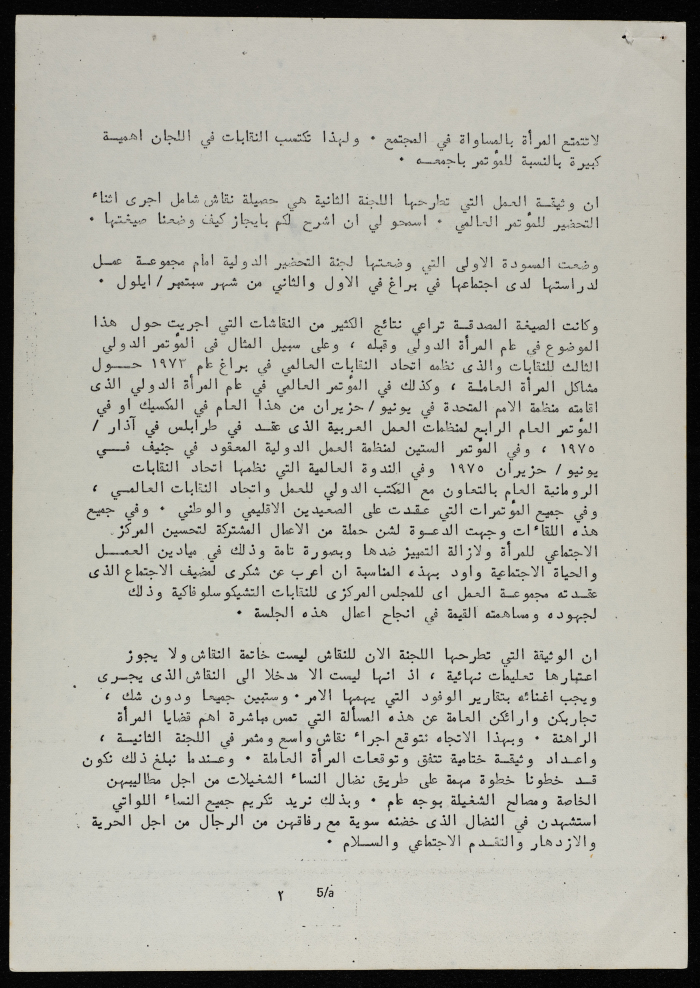 لاتتمتع المرأة بالمساواة في المجتمع ٠ ولهذا تكتسب النقابات في اللجان اهميـــة
كبيرة بالنسبة للمؤتمر باجمعــه ٠
ان وثيقــة العمل التي تطرحها اللجنة الثانية هي حصيلة نقاش شامل اجرى اثناء
التحضير للمؤتمر العالمي ٠ اسمحو لي ان اشرح لكم بايجاز كيف وضعنا صيغتها ٠
وضعت المسودة الاولى التي وضعتها لجنة التحضير الدولية امام مجموعــة عمــل
لدراستها لدى اجتماعها في براغ في الاول والثاني من شهر سبتمبر / ايلول ٠
وكانت الصيغة المصدقــة تراعي نتائج الكثير من النقاشات التي اجريت حول هذا
الموضوع في عام المرأة الدولي وقبله ، وعلى سبيل المثال في المؤتمر الدولي
الثالث للنقابات والذى نظمه اتحاد النقابات العالمي في براغ عام ١٩٧٢ حـــول
مشاكل المرأة العاملــة ، وكذلك في المؤتمر العالمي في عام المرأة الدولي الذى
اقامته منظمة الامم المتحدة في يونيو / حزيران من هذا العام في المكسيك او في
المؤتمر العام الرابع لمنظمات العمل العربية الذى عقــد في طرابلس في آذار /
١٩٧٥ ، وفي المؤتمر الستين لمنظمة العمل الدولية المعقود في جنيف فـــي
يونيو / حزيران ١٩٧٥ وفي الندوة العالمية التي نظمها اتحاد النقابات
الرومانية العام بالتعاون مع المكتب الدولي للعمل واتحاد النقابات العالمــي ،
وفي جميع المؤتمرات التي عقــدت على الصعيدين الاقليمي والوطني ٠ وفي جميع
هذه اللقاءات وجهت الدعــوة لشن حملة من الاعمال المشتركة لتحسين المركز
الاجتماعي للمرأة ولازالة التمييز ضدها وبصورة تامة وذلك في ميادين العمــل
والحياة الاجتماعية واود بهذه المناسبة ان اعرب عن شكرى لمضيف الاجتماع الذى
عقــدته مجموعــة العمل اى للمجلس المركزى للنقابات التشيكوسلوفاكية وذلك
لجهوده ومساهمته القيمة في انجاح اعمال هذه الجلسة ٠
ان الوثيقة التي تطرحها اللجنة الان للنقاش ليست خاتمة النقاش ولا يجوز
اعتبارها تعليمات نهائية ، اذ انها ليست الا مدخلا الى النقاش الذى يجــرى
ويجب اغنائه بتقارير الوفود التي يهمها الامر ٠ وستبين جميعا ودون شك ،
تجاربكن وارائكن العامة عن هذه المسألة التي تمس مباشرة اهم قضايا المرأة
الراهنة ٠ وبهذا الاتجاه نتوقع اجراء نقاش واسع ومثمر في اللجنة الثانيــة ،
واعداد وثيقــة ختامية تتفق وتوقعات المرأة العاملة ٠ وعــندما نبلغ ذلك نكون
قــد خطونا خطوة مهمة على طريق نضال النساء الشغيلات من اجل مطاليبهن
الخاصة ومصالح الشغيلة بوجه عام ٠ وبذلك نريد تكريم جميع النساء اللواتي
استشهدن في النضال الذى خضنه سوية مع رفاقهن من الرجال من اجل الحرية
والازدهار والتقــدم الاجتماعي والســلام ٠
٢ 5/a